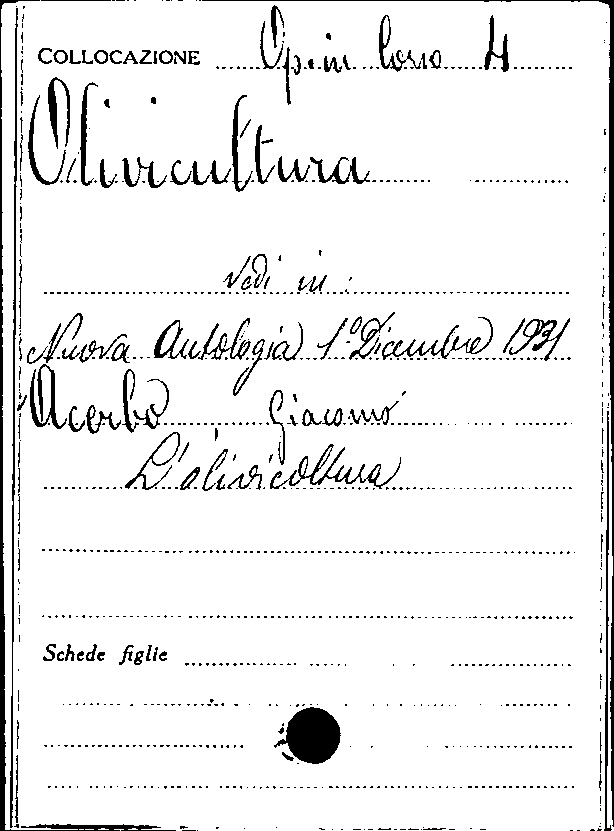 COLLOCAZIONE Op. in Corso 4
Olivicultura
Vedi in :
Nuova Antologia 1º Dicembre 1931
Acerbo Giacomo
L'olivicoltura
Schede figlie